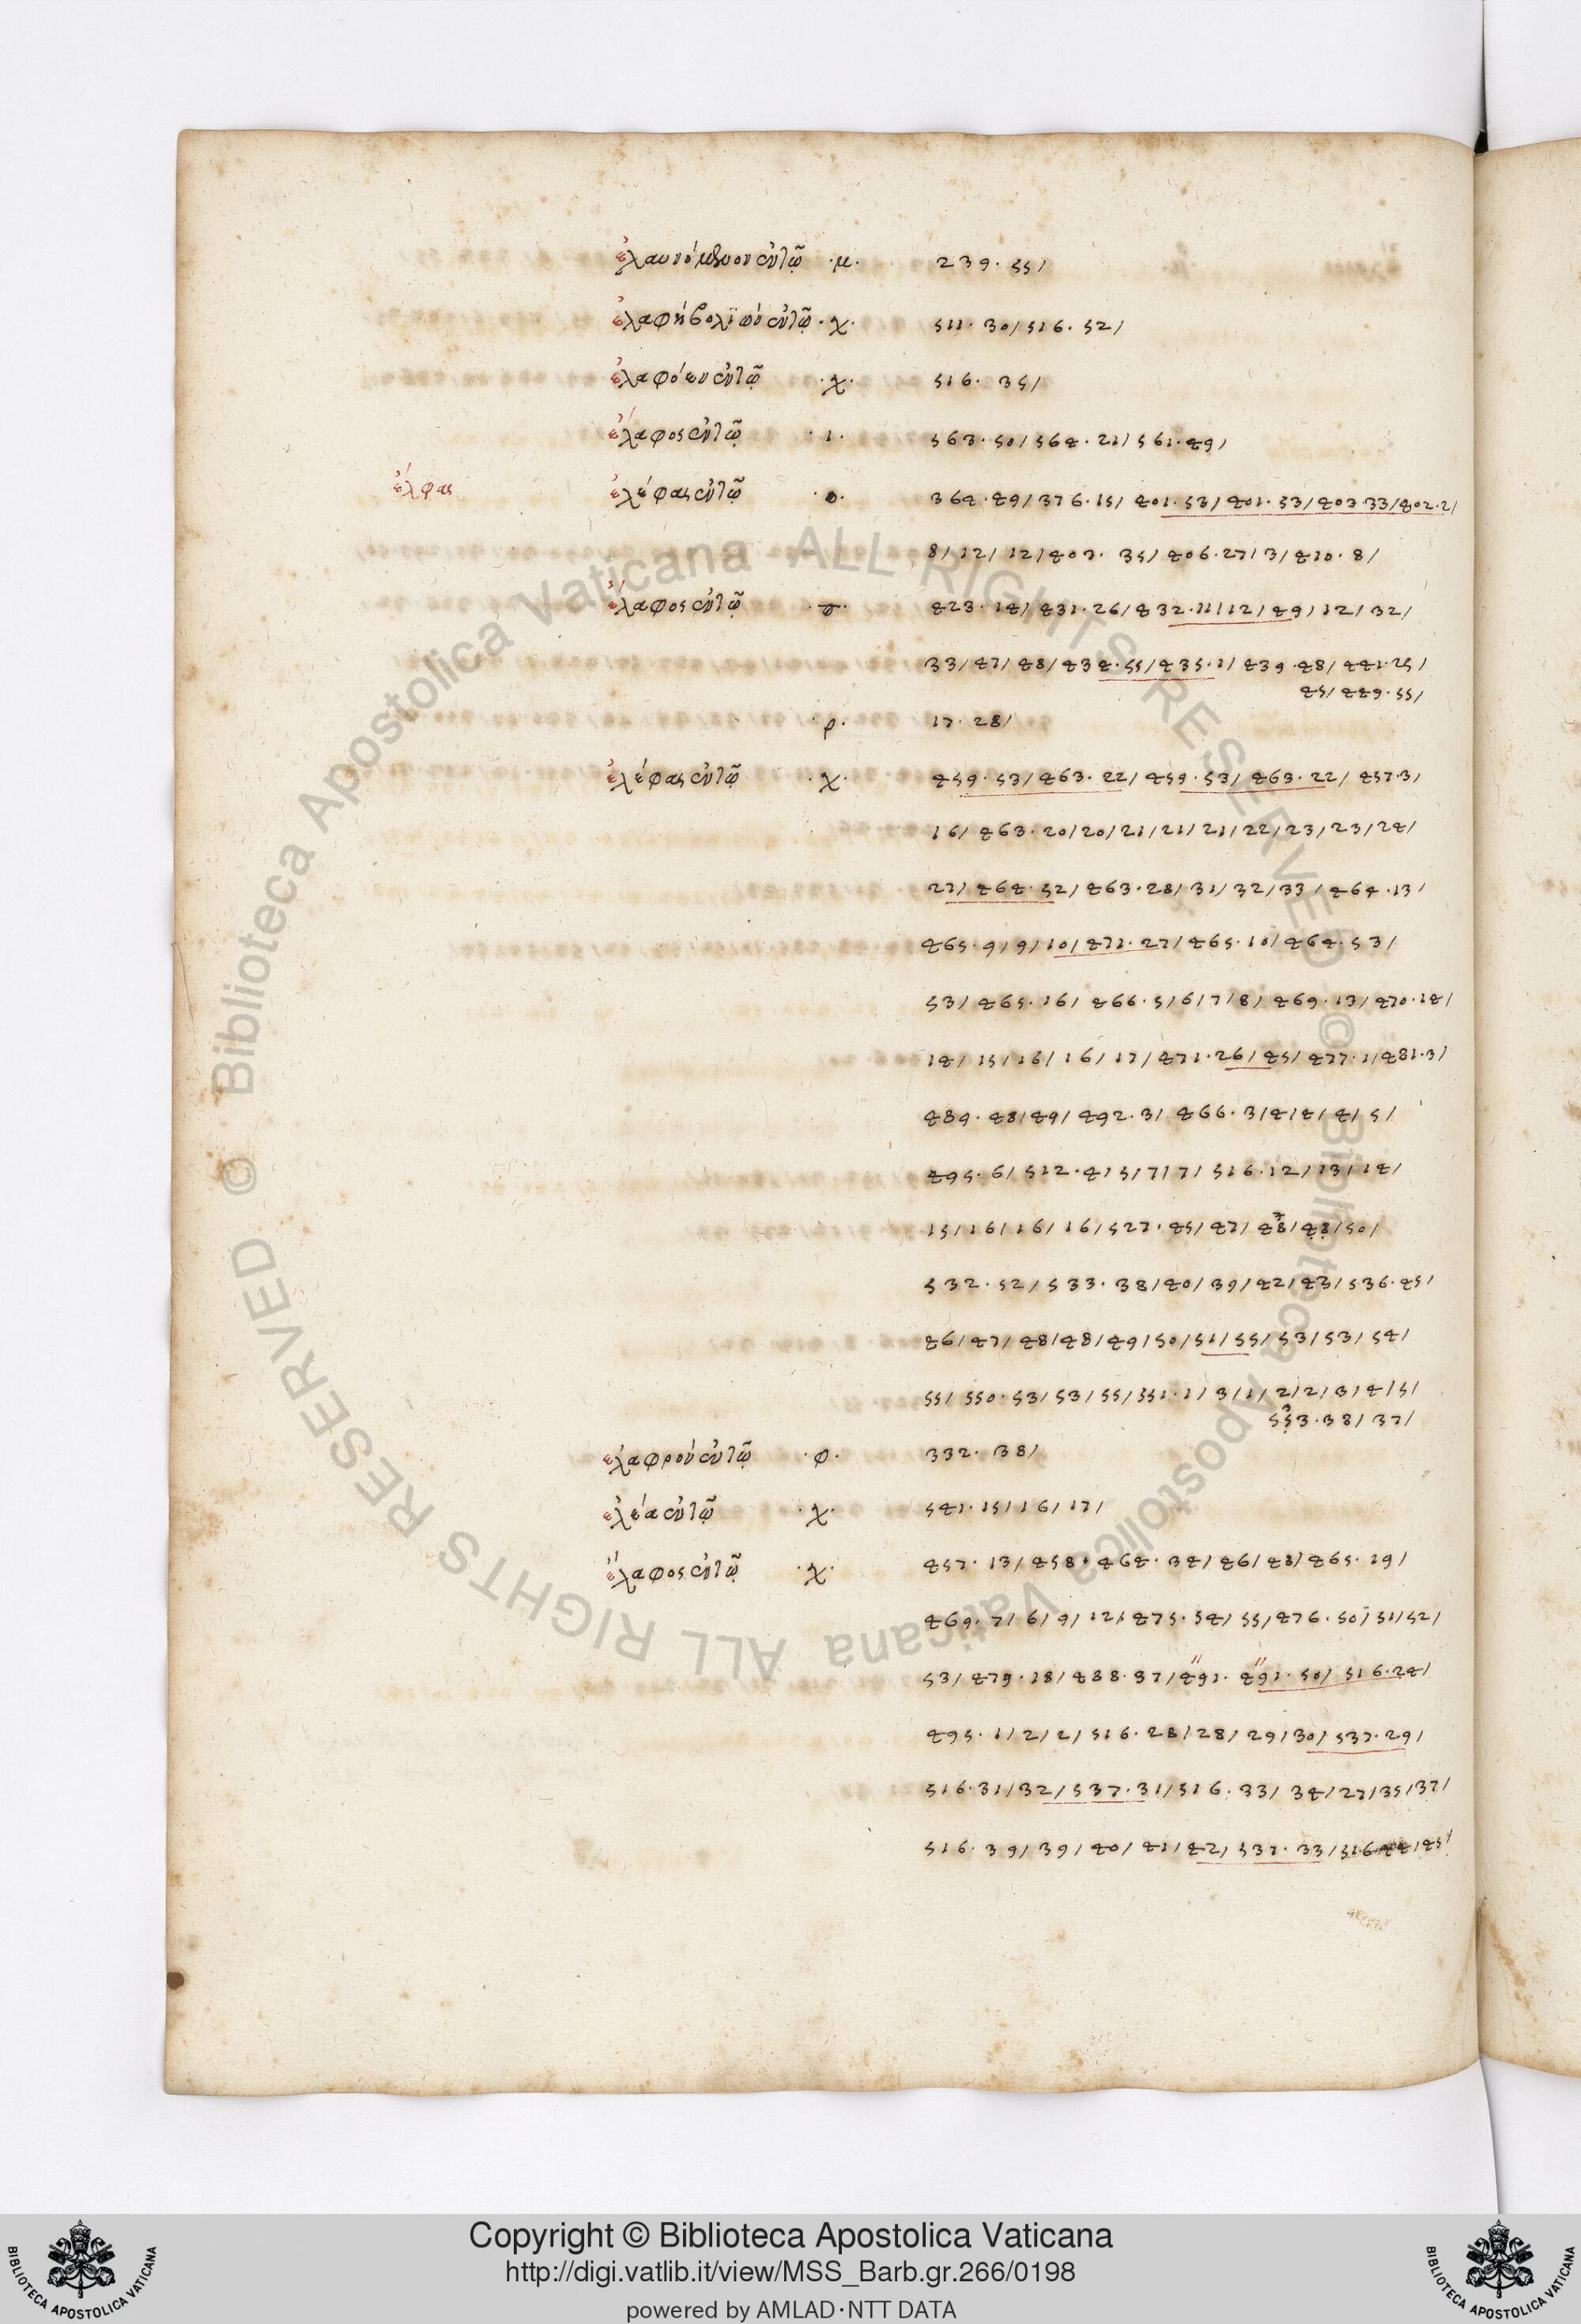 ἐλαυνόμενον ἐν τῷ ·μ· 239. 55/
ἐλαφηβολιών ἐν τῷ ·χ· 511. 30/ 516. 52/
ἐλαφόεν ἐν τῷ ·χ· 516. 35/
ἔλαφος ἐν τῷ ·ι· 563. 50/ 564. 21/ 561. 49/
ἐλέφας ἐν τῷ ·ο· 364. 49/ 376. 15/ 401. 53/ 401. 53/ 403. 33/ 402. 2/
8/ 12/ 12/ 403. 35/ 406. 27/ 3/ 410. 8/
ἔλαφος ἐν τῷ 423. 14/ 431. 26/ 432. 11/ 12/ 49/ 12/ 32/
33/ 47/ 48/ 434. 55/ 435. 1/ 439. 48/ 441. 25/
45/ 449. 55/
·ρ· 17. 28/
ἐλέφας ἐν τῷ ·χ· 459. 53/ 463. 22/ 459. 53/ 463. 22/ 457. 3/
16/ 463. 20/ 20/ 21/ 21/ 21/ 22/ 23/ 23/ 24/
27/ 464. 52/ 463. 28/ 31/ 32/ 33/ 464. 13/
465. 9/ 9/ 10/ 471. 27/ 465. 10/ 464. 53/
53/ 465. 16/ 466. 5/ 6/ 7/ 8/ 469. 13/ 470. 14/
14/ 15/ 16/ 16/ 17/ 471. 26/ 45/ 477. 1/ 481. 3/
489. 48/ 49/ 492. 3/ 466. 3/ 4/ 4/ 4/ 5/
495. 6/ 512. 4/ 5/ 7/ 7/ 516. 12/ 13/ 14/
15/ 16/ 16/ 16/ 527. 45/ 47/ 48/ 48/ 50/
532. 52/ 533. 38/ 40/ 39/ 42/ 43/ 536. 45/
46/ 47/ 48/ 48/ 49/ 50/ 51/ 55/ 53/ 53/ 54/
55/ 550. 53/ 53/ 55/ 551. 1/ 3/ 1/ 2/ 2/ 3/ 4/ 5/
553. 38/ 37/
ἐλαφρόν ἐν τῷ ·φ· 332. 38/
ἐλέα ἐν τῷ ·χ· 541. 15/ 16/ 17/
ἔλαφος ἐν τῷ ·χ· 457. 13/ 458. 464. 34/ 46/ 48/ 465. 19/
469. 7/ 6/ 9/ 12/ 475. 54/ 55/ 476. 50/ 51/ 52/
53/ 479. 18/ 488. 37/ 491. 491. 50/ 516. 24/
495. 1/ 2/ 2/ 516. 28/ 28/ 29/ 30/ 537. 29/
516. 31/ 32/ 537. 31/ 516. 33/ 34/ 27/ 35/ 37/
516. 39/ 39/ 40/ 41/ 42/ 537. 33/ 516. 44/ 45/
Biblioteca Apostolica Vaticana ALL RIGHTS RESERVED ©
Biblioteca Apostolica Vaticana ALL RIGHTS RESERVED ©
Copyright © Biblioteca Apostolica Vaticana
http://digi.vatlib.it/view/MSS_Barb.gr.266/0198
powered by AMLAD·NTT DATA
BIBLIOTECA APOSTOLICA VATICANA
BIBLIOTECA APOSTOLICA VATICANA